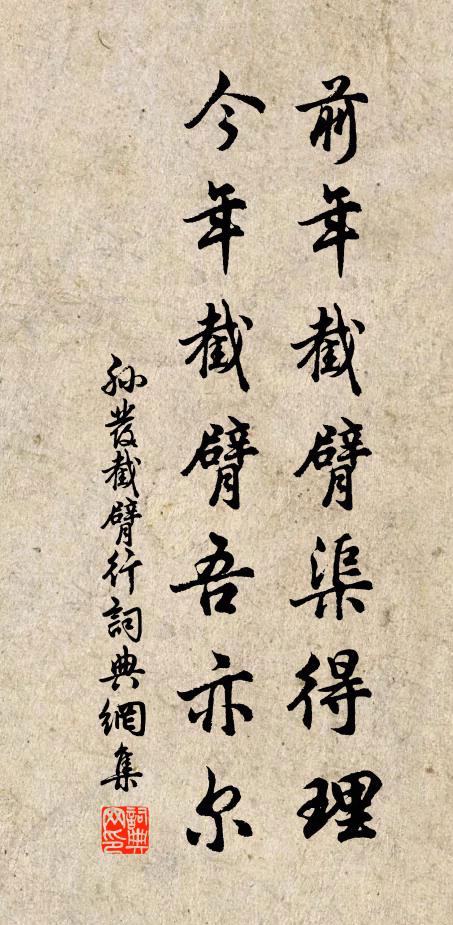 前年截臂渠得理
今年截臂吾亦尔
孙發截臂行詞典網集
詞典網印